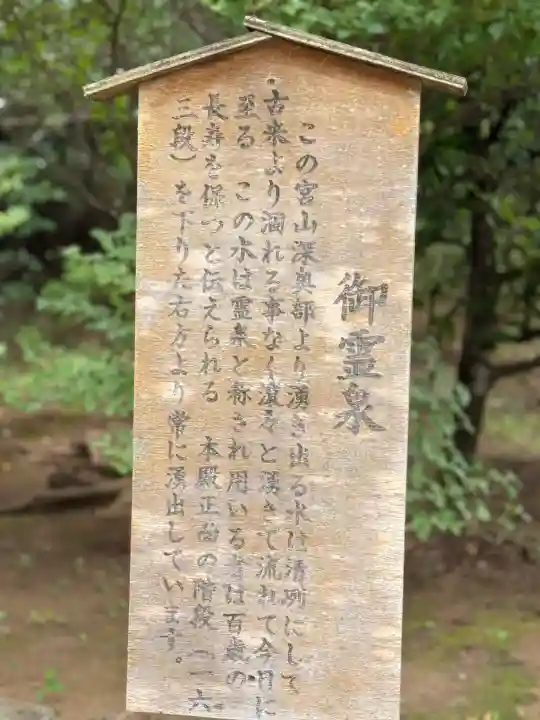 御霊泉
この宮山深奥部より湧き出る水は清冽にして
古来より涸れる事なく滾々と湧きて流れて今日に
至る この水は霊泉と称され用いる者は百歳の
長寿を保つと伝えられる 本殿正面の階段(一六
三段)を下りた右方より常に湧出しています。